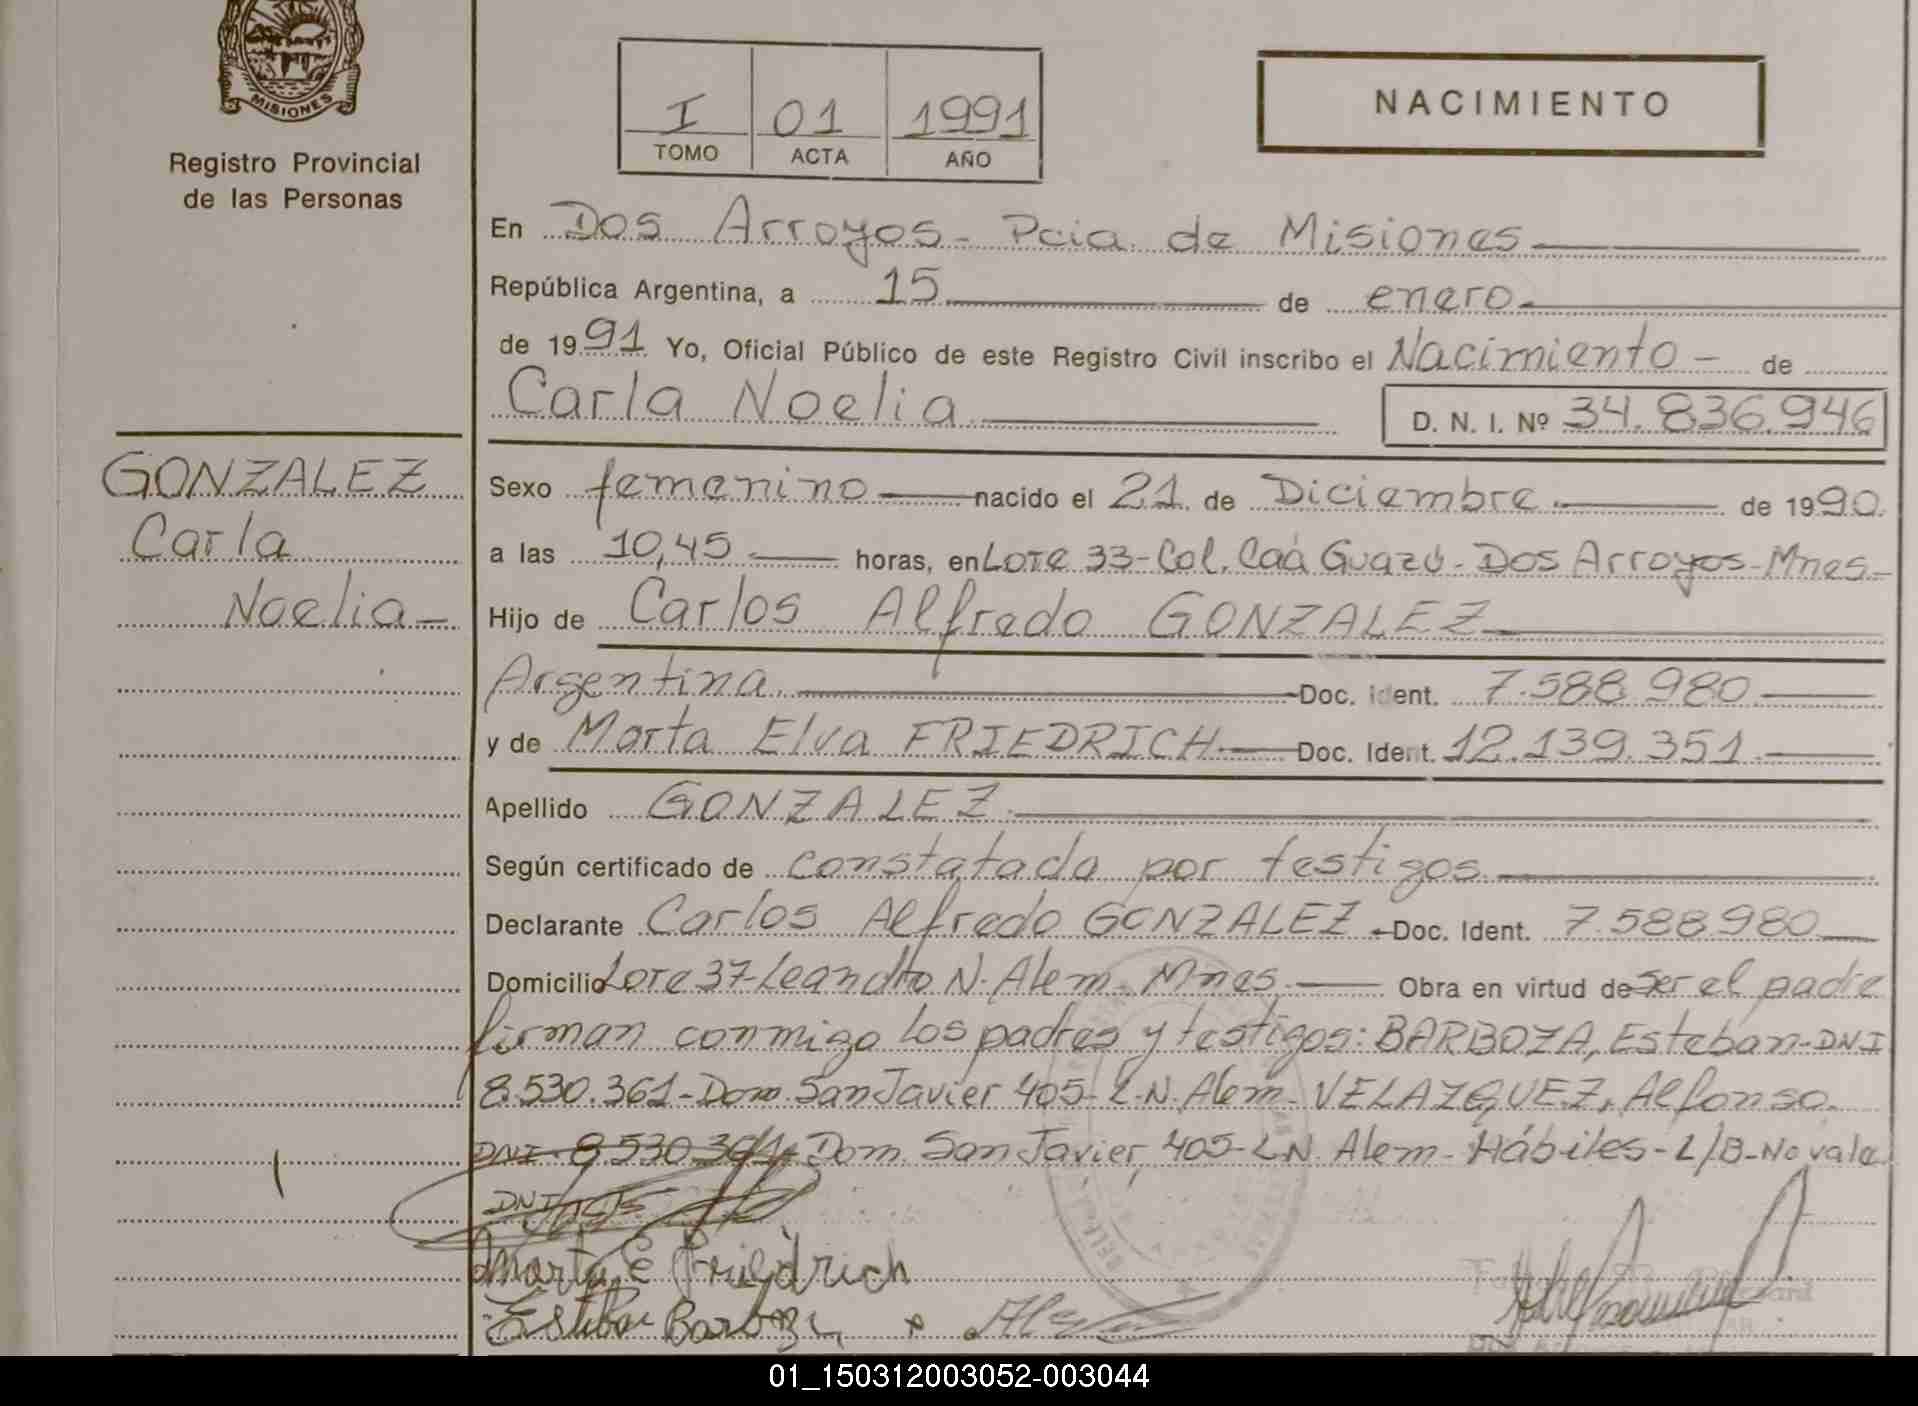 MISIONES
Registro Provincial
de las Personas
I 01 1991
TOMO ACTA AÑO
NACIMIENTO
En Dos Arroyos - Pcia. de Misiones
República Argentina, a 15 de enero
de 1991 Yo, Oficial Público de este Registro Civil inscribo el Nacimiento - de
Carla Noelia D. N. I. Nº 34.836.946
GONZALEZ
Carla
Noelia -
Sexo femenino nacido el 21 de Diciembre de 1990
a las 10,45 horas, en Lote 33-Col. Caá Guazú - Dos Arroyos - Mnes -
Hijo de Carlos Alfredo GONZALEZ
Argentina Doc. Ident. 7.588.980
y de Marta Elva FRIEDRICH Doc. Ident. 12.139.351
Apellido GONZALEZ
Según certificado de constatada por testigos
Declarante Carlos Alfredo GONZALEZ - Doc. Ident. 7.588.980
Domicilio Lote 37-Leandro N. Alem - Mnes. Obra en virtud de ser el padre
firman conmigo los padres y testigos: BARBOZA, Esteban-DNI
8.530.361-Dom. San Javier 405-L.N. Alem - VELAZQUEZ, Alfonso.
DNI 8.530.361 Dom. San Javier 405-L.N. Alem - Hábiles - L/B-No vale
DNI
Marta E Friedrich
Esteban Barboza
01_150312003052-003044